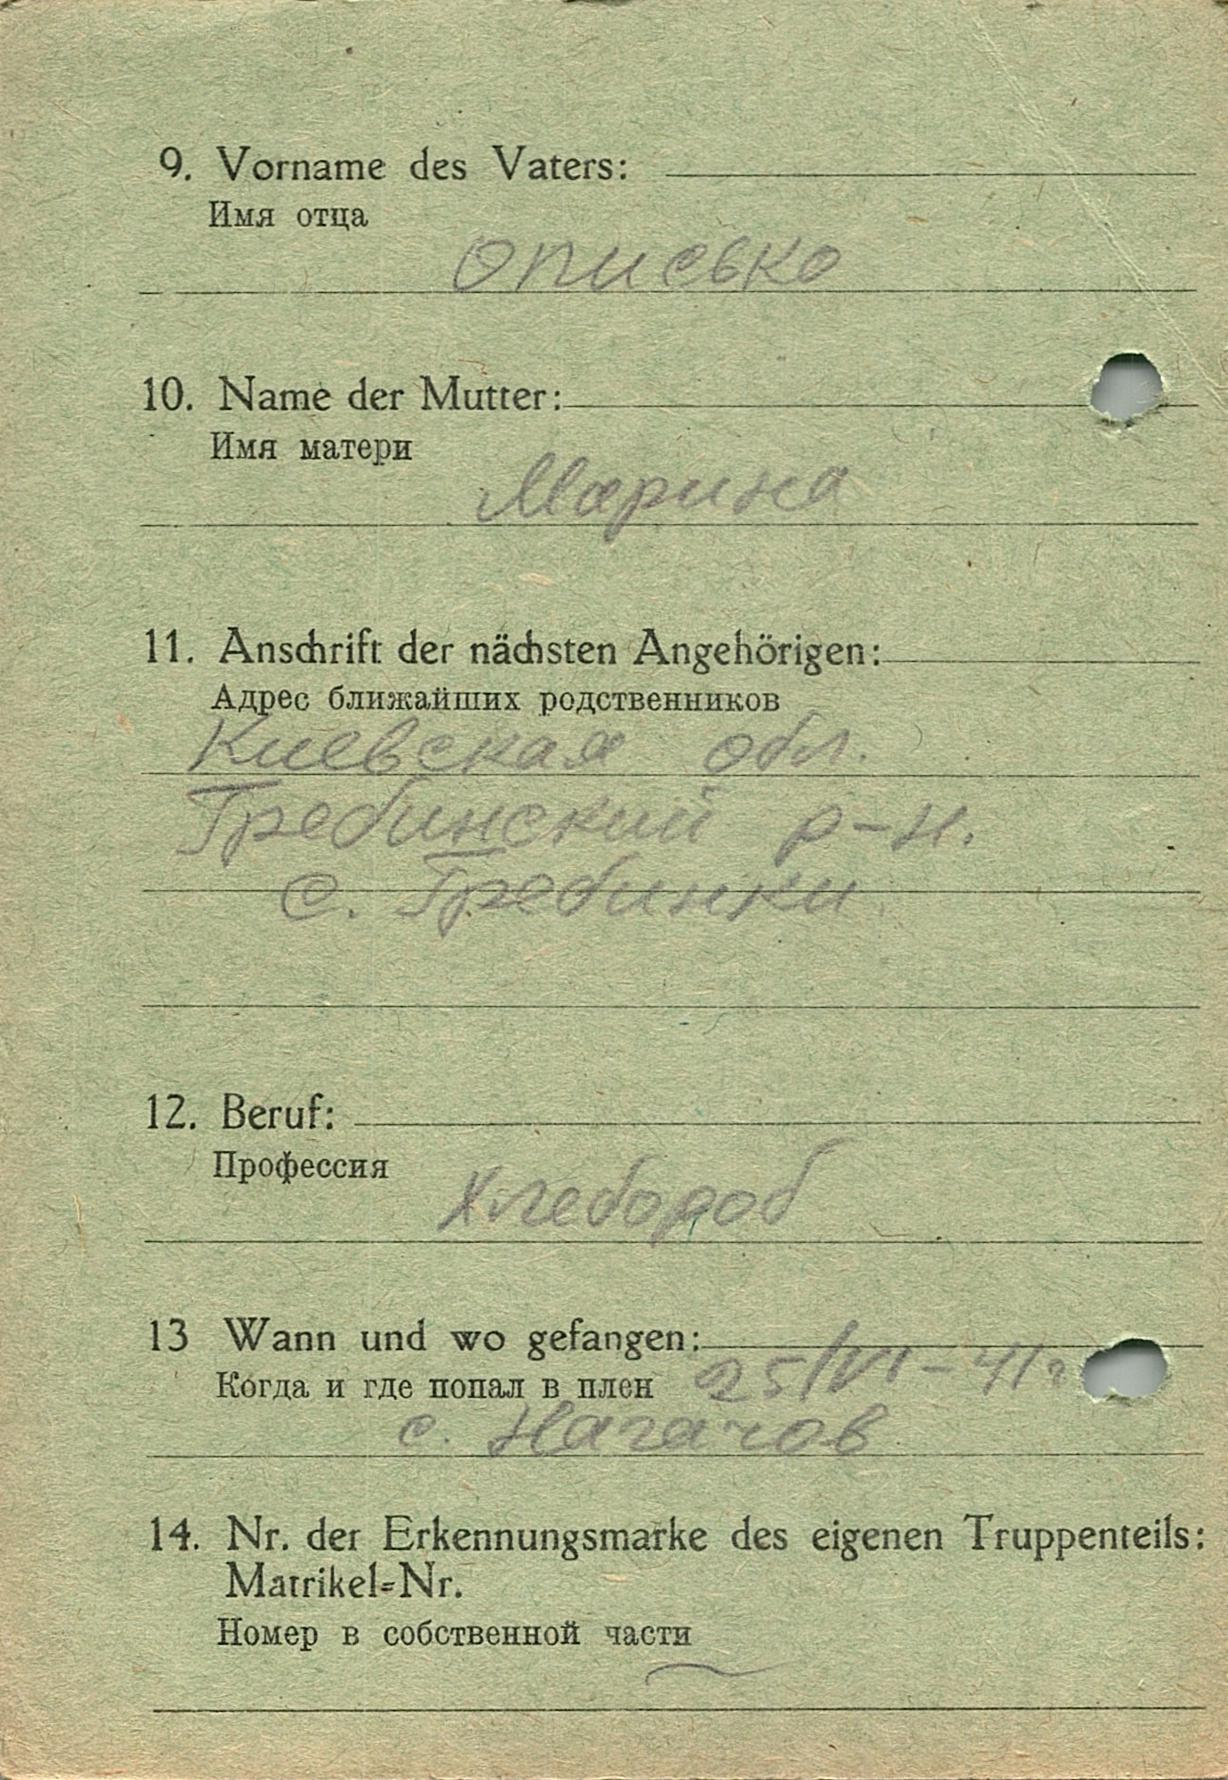 9. Vorname des Vaters:
Имя отца
Описько
10. Name der Mutter:
Имя матери
Марина
11. Anschrift der nächsten Angehörigen:
Адрес ближайших родственников
Киевская обл.
Гребинский р-н.
с. Гребинки
12. Beruf:
Профессия
Хлебороб
13 Wann und wo gefangen:
Когда и где попал в плен 25/VI-41г
с. Нагачов
14. Nr. der Erkennungsmarke des eigenen Truppenteils:
Matrikel-Nr.
Номер в собственной части